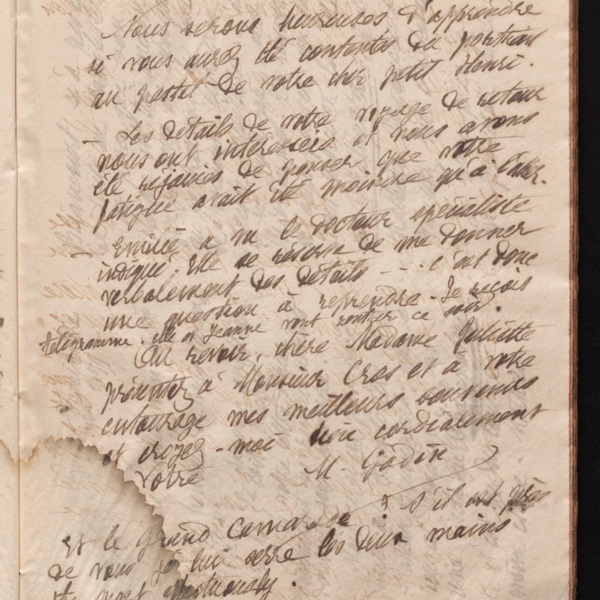 Nous serons heureuses d'apprendre
si vous aurez été contente du portrait
au pastel de votre cher petit Henri.
– Les détails de votre voyage de retour
nous ont intéressées et nous avons
été réjouies de penser que votre
fatigue avait été moindre qu'à l'aller.
– Emilie a vu le docteur spécialiste
indiqué. Elle se réserve de me donner
verbalement des détails --- c'est donc
une question à reprendre. Je reçois
télégramme. elle et Jeanne vont rentrer ce soir.
Au revoir, chère Madame Juliette
présentez à Monsieur Cros et à votre
entourage mes meilleurs souvenirs
et croyez-moi bien cordialement
Votre M. Godin
Et le grand camarade ? S'il est près
de vous je lui serre les deux mains
affectueusement.